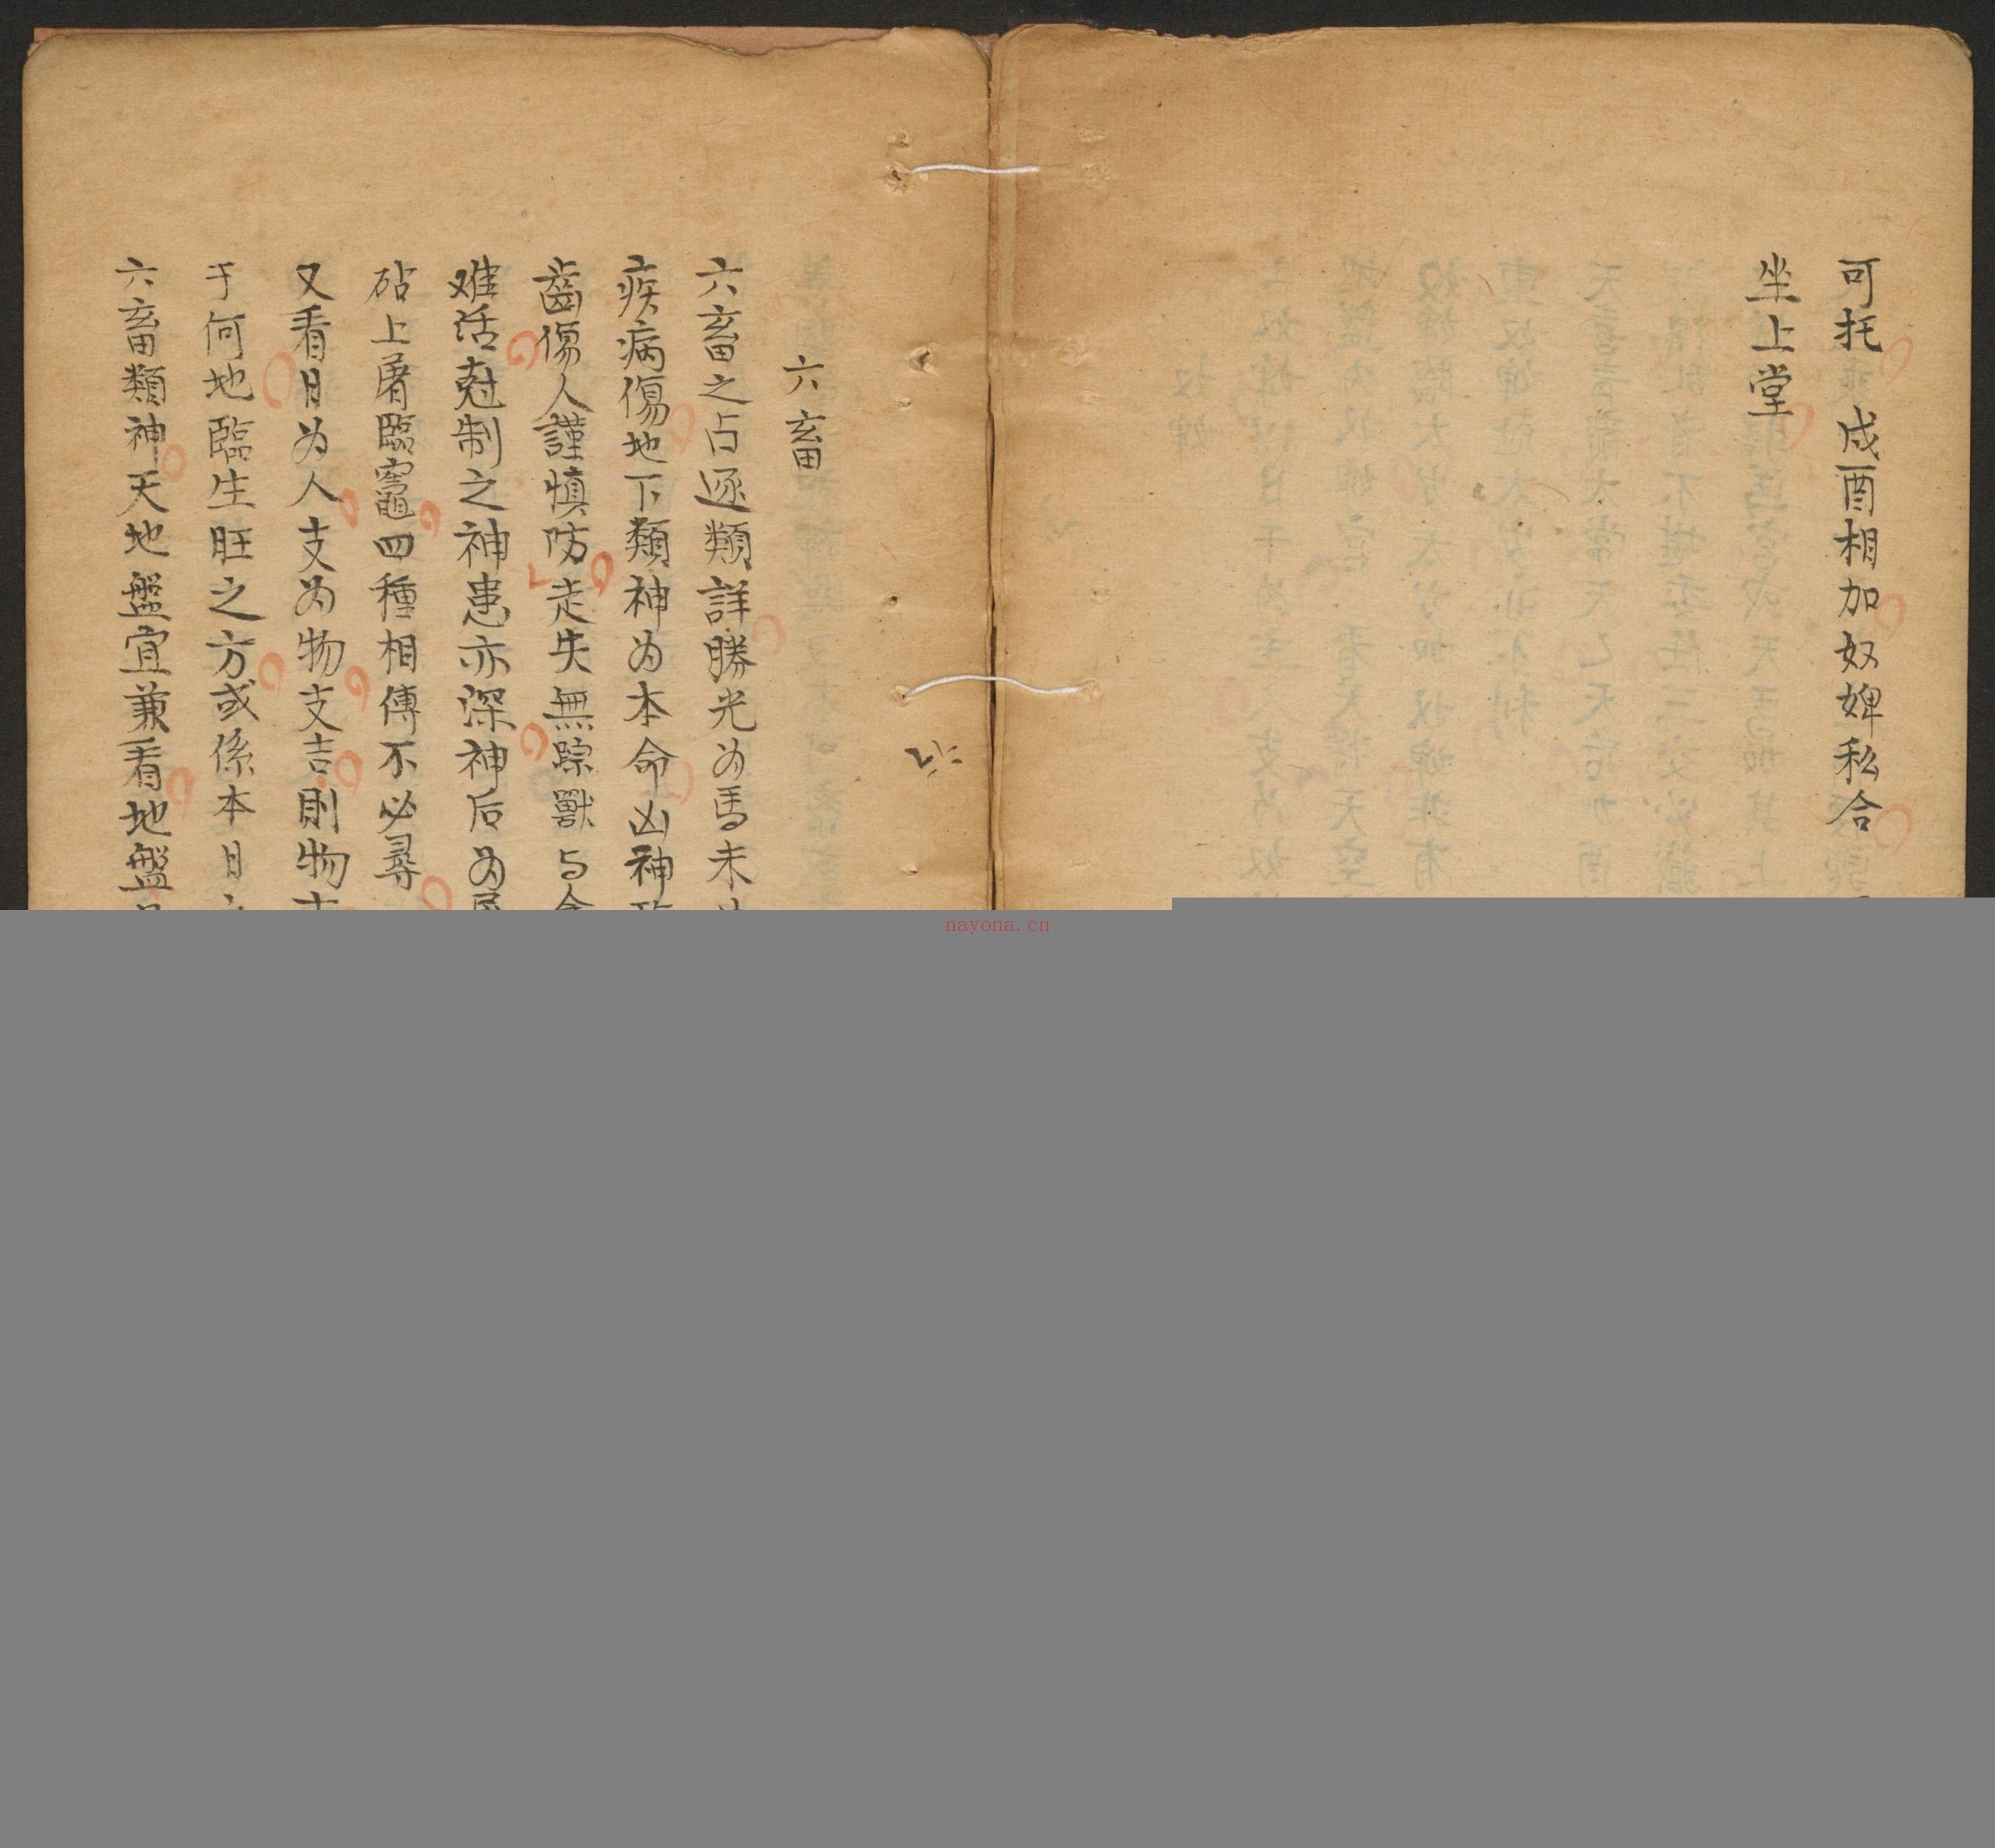 可托 戌酉相加奴婢私合
坐上堂
六畜
六畜之占逐類詳勝光为馬未
疾病傷地下類神为本命凶神
齒傷人謹慎防走失無踪獸与
难活尅制之神患亦深神后为
砧上屠臨竈四種相傳不必尋
又看日为人支为物支吉則物
于何地臨生旺之方或係本日
六畜類神天地盤宜兼看地盤
nayona.cn